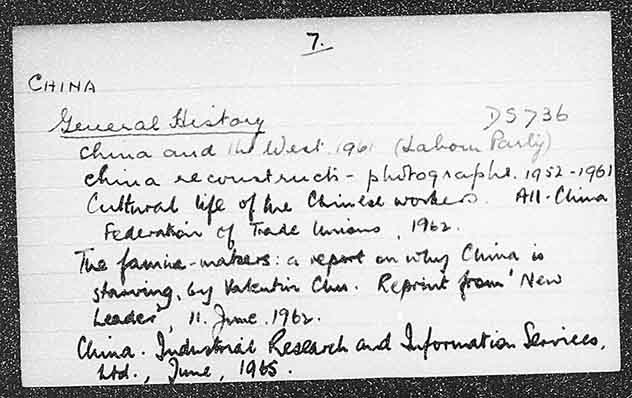 7.
CHINA
General History DS736
China and the West. 1961 (Labour Party)
China reconstructs - photographs. 1952-1961
Cultural life of the Chinese workers. All-China
Federation of Trade Unions, 1962.
The famine-makers: a report on why China is
starving, by Valentin Chu. Reprint from 'New
Leader', 11. June. 1962.
China. Industrial Research and Information Services,
Ltd., June, 1965.